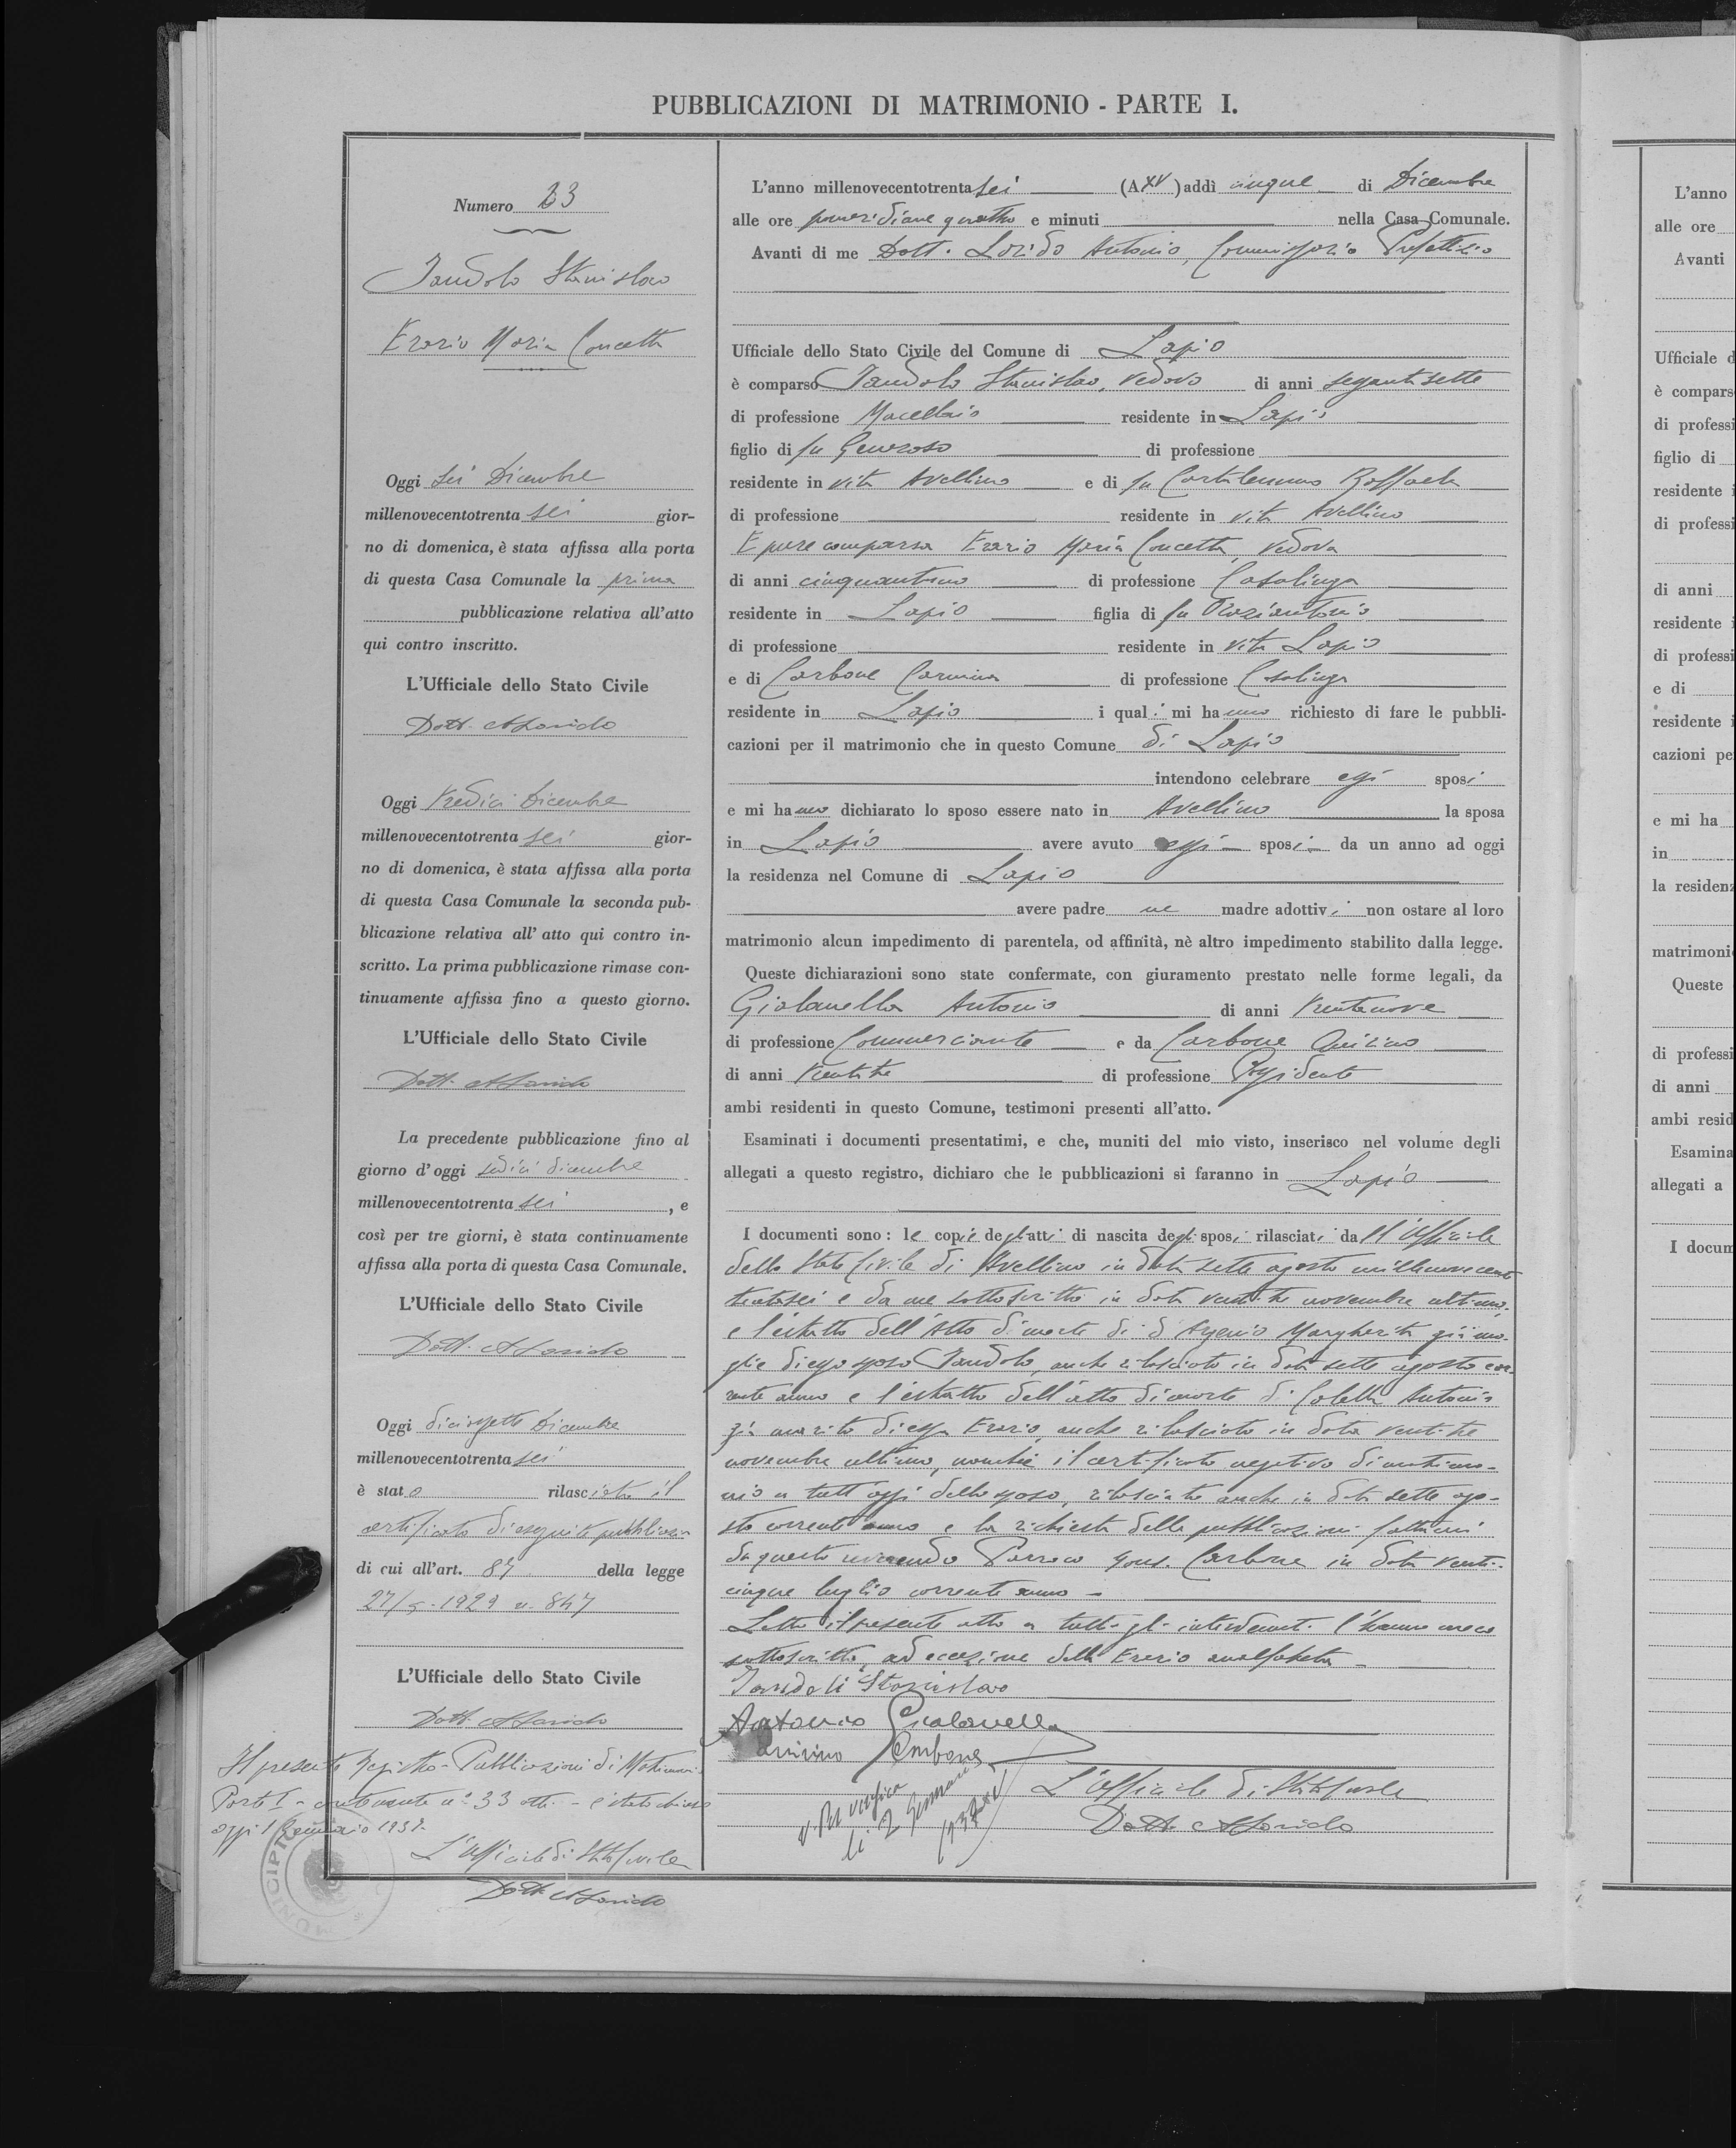 PUBBLICAZIONI DI MATRIMONIO - PARTE I.
Numero 33
Iandolo Stanislao
Erario Maria Concetta
Oggi sei Dicembre
millenovecentotrenta sei gior-
no di domenica, è stata affissa alla porta
di questa Casa Comunale la prima
pubblicazione relativa all'atto
qui contro inscritto.
L'Ufficiale dello Stato Civile
Dott. A Lorido
Oggi tredici Dicembre
millenovecentotrenta sei gior-
no di domenica, è stata affissa alla porta
di questa Casa Comunale la seconda pub-
blicazione relativa all' atto qui contro in-
scritto. La prima pubblicazione rimase con-
tinuamente affissa fino a questo giorno.
L'Ufficiale dello Stato Civile
Dott. A Lorido
La precedente pubblicazione fino al
giorno d'oggi sedici dicembre
millenovecentotrenta sei, e
così per tre giorni, è stata continuamente
affissa alla porta di questa Casa Comunale.
L'Ufficiale dello Stato Civile
Dott. A Lorido
Oggi diciassette Dicembre
millenovecentotrenta sei
è stato rilasciato il
certificato di eseguite pubblicazioni
di cui all'art. 87 della legge
27/5-1929 n. 847
L'Ufficiale dello Stato Civile
Dott. A Lorido
Il presente Registro - Pubblicazioni di Matrimoni
Parte I - contenente n° 33 atti - è stato chiuso
oggi 1 Gennaio 1937.
L'ufficiale di Stato Civile
Dott. A Lorido
MUNICIPIO
L'anno millenovecentotrenta sei (A XV) addì cinque di Dicembre
alle ore pomeridiane quattro e minuti nella Casa Comunale.
Avanti di me Dott. Lorido Antonio, Commissario Prefettizio
Ufficiale dello Stato Civile del Comune di Lapio
è comparso Iandolo Stanislao, vedovo di anni sessantasette
di professione Macellaio residente in Lapio
figlio di fu Generoso di professione
residente in vita Avellino e di fu Raffaela
di professione residente in vita Avellino
È pure comparsa Erario Maria Concetta, vedova
di anni cinquantuno di professione Casalinga
residente in Lapio figlia di fu
di professione residente in vita Lapio
e di Carbone Carmina di professione Casalinga
residente in Lapio i quali mi hanno richiesto di fare le pubbli-
cazioni per il matrimonio che in questo Comune di Lapio
intendono celebrare essi sposi
e mi hanno dichiarato lo sposo essere nato in Avellino la sposa
in Lapio avere avuto essi sposi da un anno ad oggi
la residenza nel Comune di Lapio
avere padre ne madre adottivi non ostare al loro
matrimonio alcun impedimento di parentela, od affinità, nè altro impedimento stabilito dalla legge.
Queste dichiarazioni sono state confermate, con giuramento prestato nelle forme legali, da
Giolanella Antonio di anni trentanove
di professione Commerciante e da Carbone Quirino
di anni di professione Possidente
ambi residenti in questo Comune, testimoni presenti all'atto.
Esaminati i documenti presentatimi, e che, muniti del mio visto, inserisco nel volume degli
allegati a questo registro, dichiaro che le pubblicazioni si faranno in Lapio
I documenti sono: le copie degli atti di nascita degli sposi rilasciati dall'Ufficiale
dello Stato Civile di Avellino in data sette agosto millenovecento
trentasei e da me sottoscritto in data ventitre novembre ultimo,
e l'estratto dell'Atto di morte di d'Agenio Margherita già mo-
glie di esso sposo Iandolo, anche rilasciato in data sette agosto cor-
rente anno e l'estratto dell'atto di morte di Coletta Antonio
già marito di essa Erario, anche rilasciato in data ventitre
novembre ultimo, nonchè il certificato negativo di matrimo-
nio a tutt'oggi dello sposo, rilasciato anche in data sette ago-
sto corrente anno e la richiesta delle pubblicazioni fattami
da questo reverendo Parroco Carbone in data venti-
cinque luglio corrente anno -
Letto il presente atto a tutti gl'intervenuti l'hanno meco
sottoscritto, ad eccezione della Erario analfabeta -
Iandoli Stanislao
Antonio Giolanella
Quirino Carbone
L'Ufficiale di Stato Civile
Dott. A Lorido
V. Per verifica
li 2 Gennaio
1937 XV
L'anno
alle ore
Avanti
Ufficiale d
è compars
di professi
figlio di
residente i
di professi
di anni
residente i
di professi
e di
residente i
cazioni pe
e mi ha
in
la residenz
matrimoni
Queste
di professi
di anni
ambi resid
Esamina
allegati a
I docum